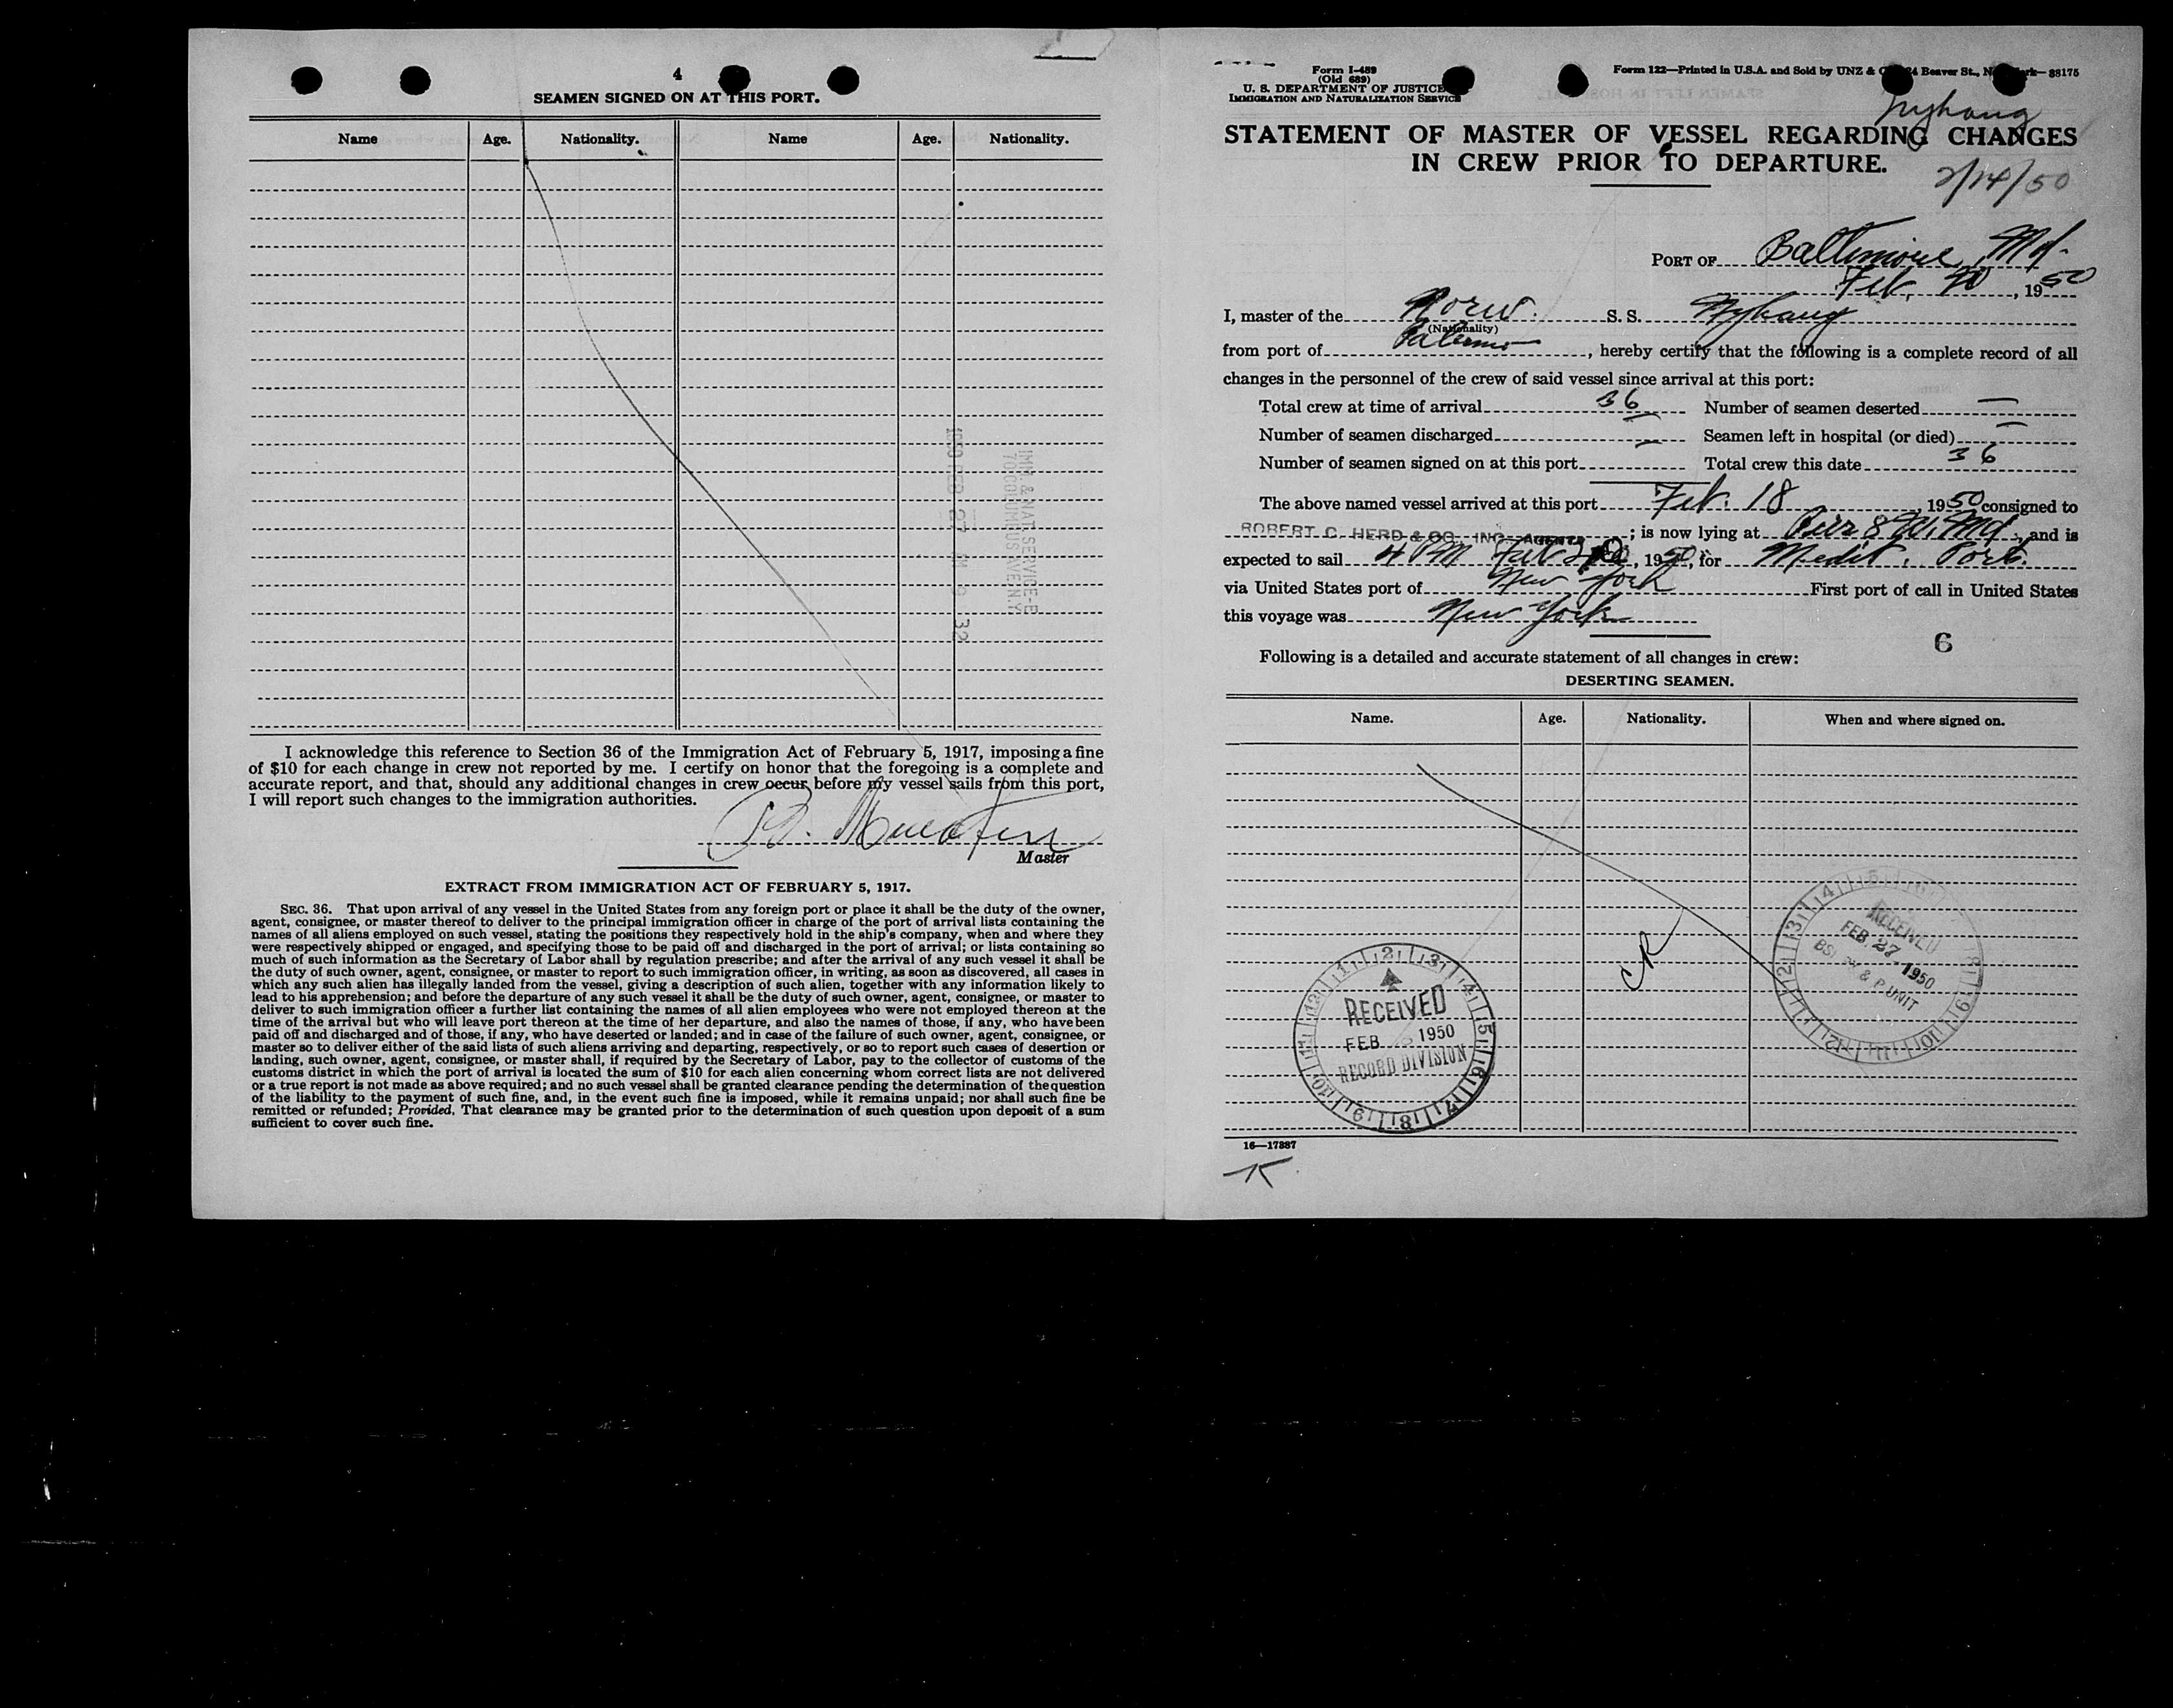 4
SEAMEN SIGNED ON AT THIS PORT.
Name Age. Nationality. Name Age. Nationality.
IMM. & NAT. SERVICE-E
70 COLUMBUS AVE N.Y.
1950 FEB 27 9 32
I acknowledge this reference to Section 36 of the Immigration Act of February 5, 1917, imposing a fine
of $10 for each change in crew not reported by me. I certify on honor that the foregoing is a complete and
accurate report, and that, should any additional changes in crew occur before my vessel sails from this port,
I will report such changes to the immigration authorities.
Master
EXTRACT FROM IMMIGRATION ACT OF FEBRUARY 5, 1917.
SEC. 36. That upon arrival of any vessel in the United States from any foreign port or place it shall be the duty of the owner,
agent, consignee, or master thereof to deliver to the principal immigration officer in charge of the port of arrival lists containing the
names of all aliens employed on such vessel, stating the positions they respectively hold in the ship's company, when and where they
were respectively shipped or engaged, and specifying those to be paid off and discharged in the port of arrival; or lists containing so
much of such information as the Secretary of Labor shall by regulation prescribe; and after the arrival of any such vessel it shall be
the duty of such owner, agent, consignee, or master to report to such immigration officer, in writing, as soon as discovered, all cases in
which any such alien has illegally landed from the vessel, giving a description of such alien, together with any information likely to
lead to his apprehension; and before the departure of any such vessel it shall be the duty of such owner, agent, consignee, or master to
deliver to such immigration officer a further list containing the names of all alien employees who were not employed thereon at the
time of the arrival but who will leave port thereon at the time of her departure, and also the names of those, if any, who have been
paid off and discharged and of those, if any, who have deserted or landed; and in case of the failure of such owner, agent, consignee, or
master so to deliver either of the said lists of such aliens arriving and departing, respectively, or so to report such cases of desertion or
landing, such owner, agent, consignee, or master shall, if required by the Secretary of Labor, pay to the collector of customs of the
customs district in which the port of arrival is located the sum of $10 for each alien concerning whom correct lists are not delivered
or a true report is not made as above required; and no such vessel shall be granted clearance pending the determination of the question
of the liability to the payment of such fine, and, in the event such fine is imposed, while it remains unpaid; nor shall such fine be
remitted or refunded; Provided, That clearance may be granted prior to the determination of such question upon deposit of a sum
sufficient to cover such fine.
Form I-489
(Old 689)
U. S. DEPARTMENT OF JUSTICE
IMMIGRATION AND NATURALIZATION SERVICE
Form 122—Printed in U.S.A. and Sold by UNZ & 24 Beaver St., 88175
Nyhaug
STATEMENT OF MASTER OF VESSEL REGARDING CHANGES
IN CREW PRIOR TO DEPARTURE.
2/14/50
PORT OF Baltimore, Md.
Feb. 20, 1950
I, master of the Norw. S. S. Nyhaug
(Nationality)
from port of Palermo, hereby certify that the following is a complete record of all
changes in the personnel of the crew of said vessel since arrival at this port:
Total crew at time of arrival 36 Number of seamen deserted —
Number of seamen discharged — Seamen left in hospital (or died) —
Number of seamen signed on at this port — Total crew this date 36
The above named vessel arrived at this port Feb. 18 1950 consigned to
ROBERT C. HERD & CO. INC. AGENTS; is now lying at Pier 8 Md, and is
expected to sail 4 PM Feb 20, 1950, for Medit. Ports.
via United States port of New York First port of call in United States
this voyage was New York
6
Following is a detailed and accurate statement of all changes in crew:
DESERTING SEAMEN.
Name. Age. Nationality. When and where signed on.
RECEIVED
FEB. 27 1950
BSI & P UNIT
RECEIVED
FEB. 1950
RECORD DIVISION
16—17887